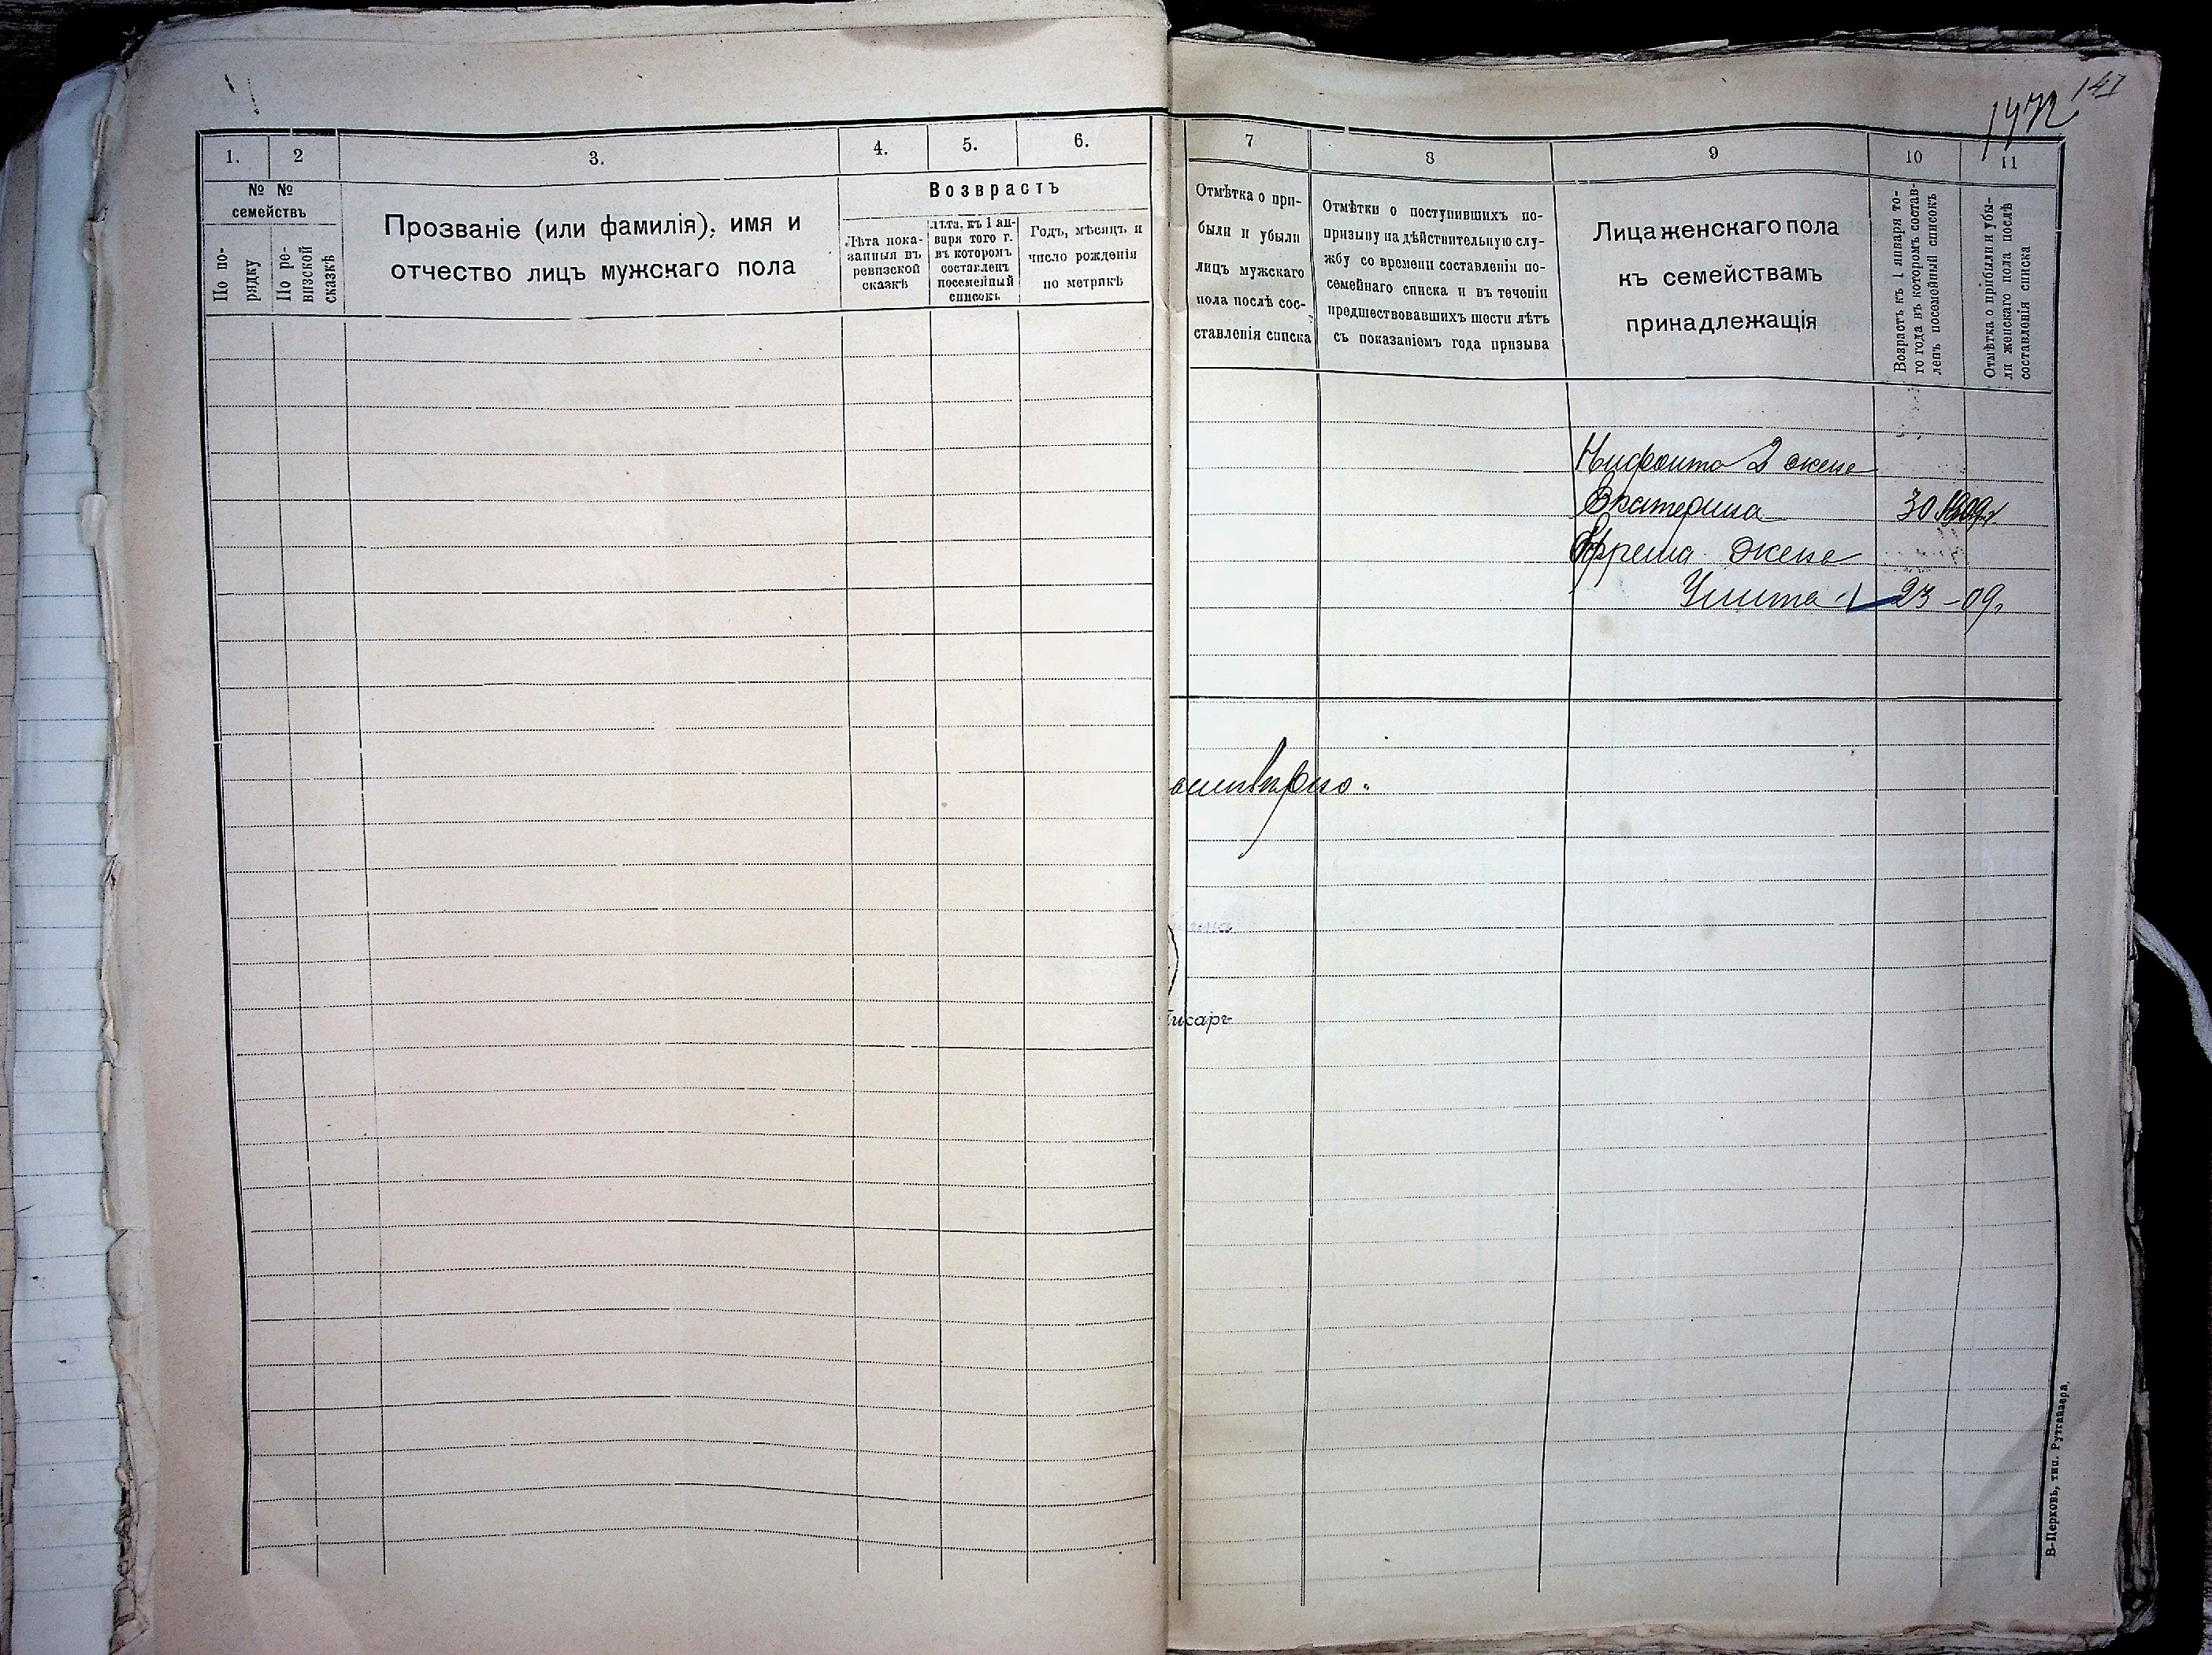 147
1472
1.
2
3.
4.
5.
6.
№ №
семействъ
По по-
рядку
По ре-
визской
сказкѣ
Прозваніе (или фамилія), имя и
отчество лицъ мужскаго пола
Возврастъ
Лѣта пока-
занныя въ
ревизской
сказкѣ
лѣта, къ 1 ян-
варя того г.
въ которомъ
составленъ
посемейный
списокъ
Годъ, мѣсяцъ и
число рожденія
по метрикѣ
7
8
9
10
11
Отмѣтка о при-
были и убыли
лицъ мужскаго
пола послѣ сос-
ставленія списка
Отмѣтки о поступившихъ по-
призыву на дѣйствительную слу-
жбу со времени составленія по-
семейнаго списка и въ теченіи
предшествовавшихъ шести лѣтъ
съ показаніемъ года призыва
Лица женскаго пола
къ семействамъ
принадлежащія
Возрастъ къ 1 января то-
го года въ которомъ состав-
ленъ посемейный списокъ
Отмѣтка о прибыли и убы-
ли женскаго пола послѣ
составленія списка
Нифонта 2 жена
Екатерина 30 1909 г.
Ефрема жена
23 - 09 г.
писарь
Б-Церковь, тип. Рутгайзера.